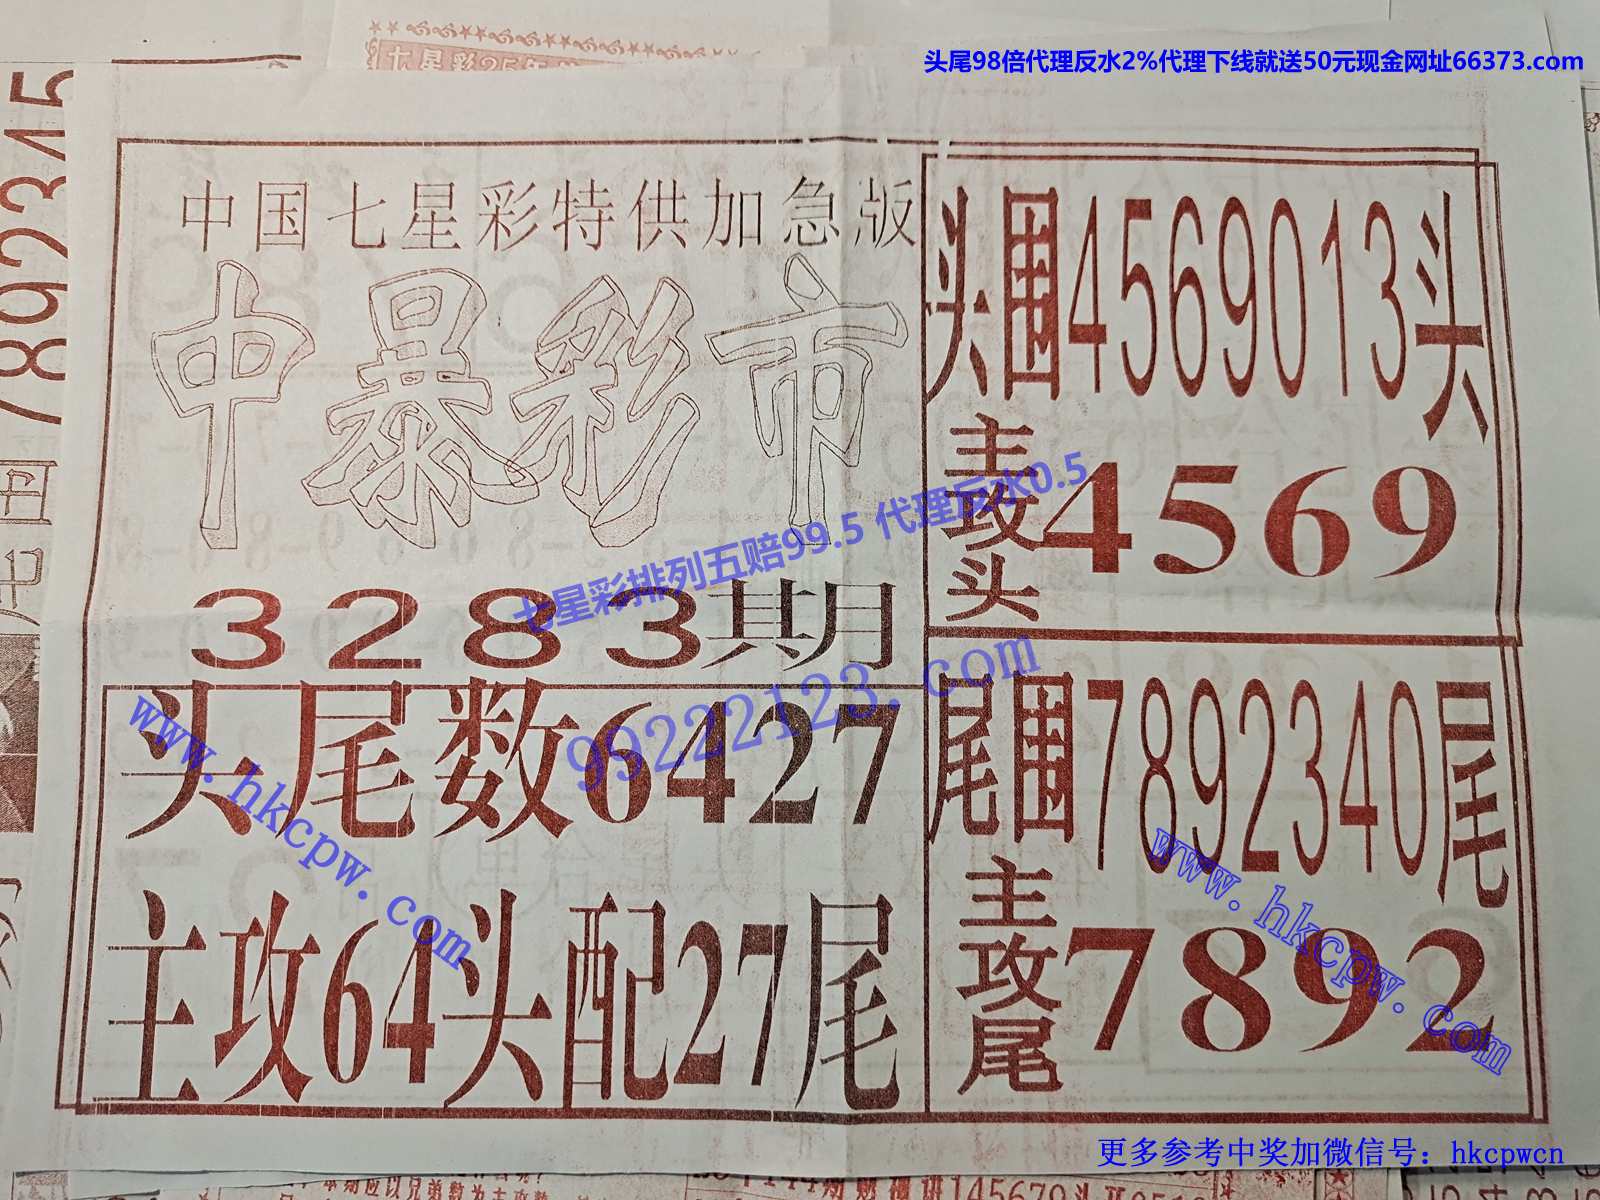 头尾98倍代理反水2%代理下线就送50元现金网址66373.com
中国七星彩特供加急版
中暴彩市
3283期
头尾数6427
主攻64头配27尾
头围4569013头
主攻头4569
尾围7892340尾
主攻尾7892
七星彩排列五赔99.5 代理反水0.5
99222123.com
www.hkcpw.com
www.hkcpw.com
更多参考中奖加微信号：hkcpwcn
7892345